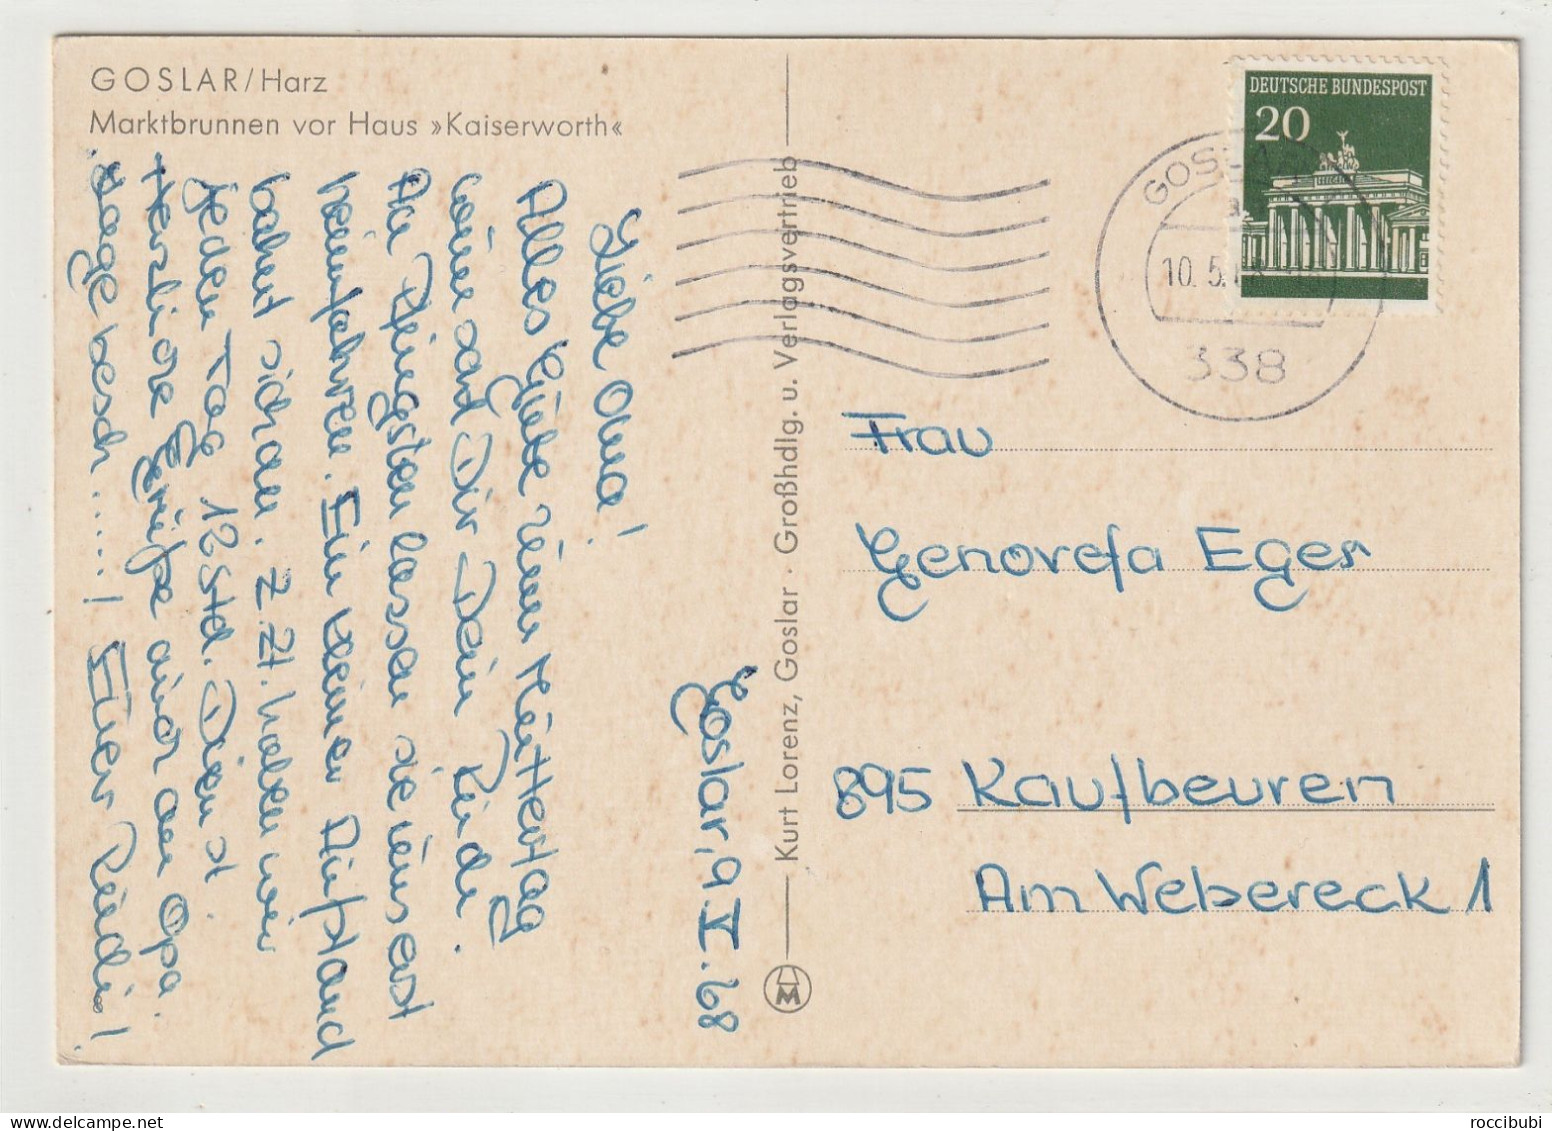 GOSLAR/Harz
Marktbrunnen vor Haus »Kaiserworth«
Goslar, 9.V.68
Liebe Oma!
Alles Gute zum Muttertag
wünscht Dir Dein Rudi.
An Pfingsten lassen sie uns erst
heimfahren. Ein kleiner Aufstand
bahnt sich an. Z.Zt. haben wir
jeden Tag 12 Std. Dienst.
Herzliche Grüße auch an Opa.
Euer Rudi!
Kurt Lorenz, Goslar · Großhdlg. u. Verlagsvertrieb
DEUTSCHE BUNDESPOST
20
GOSLAR
10. 5.
338
Frau
Genovefa Eger
895 Kaufbeuren
Am Webereck 1
roccibubi